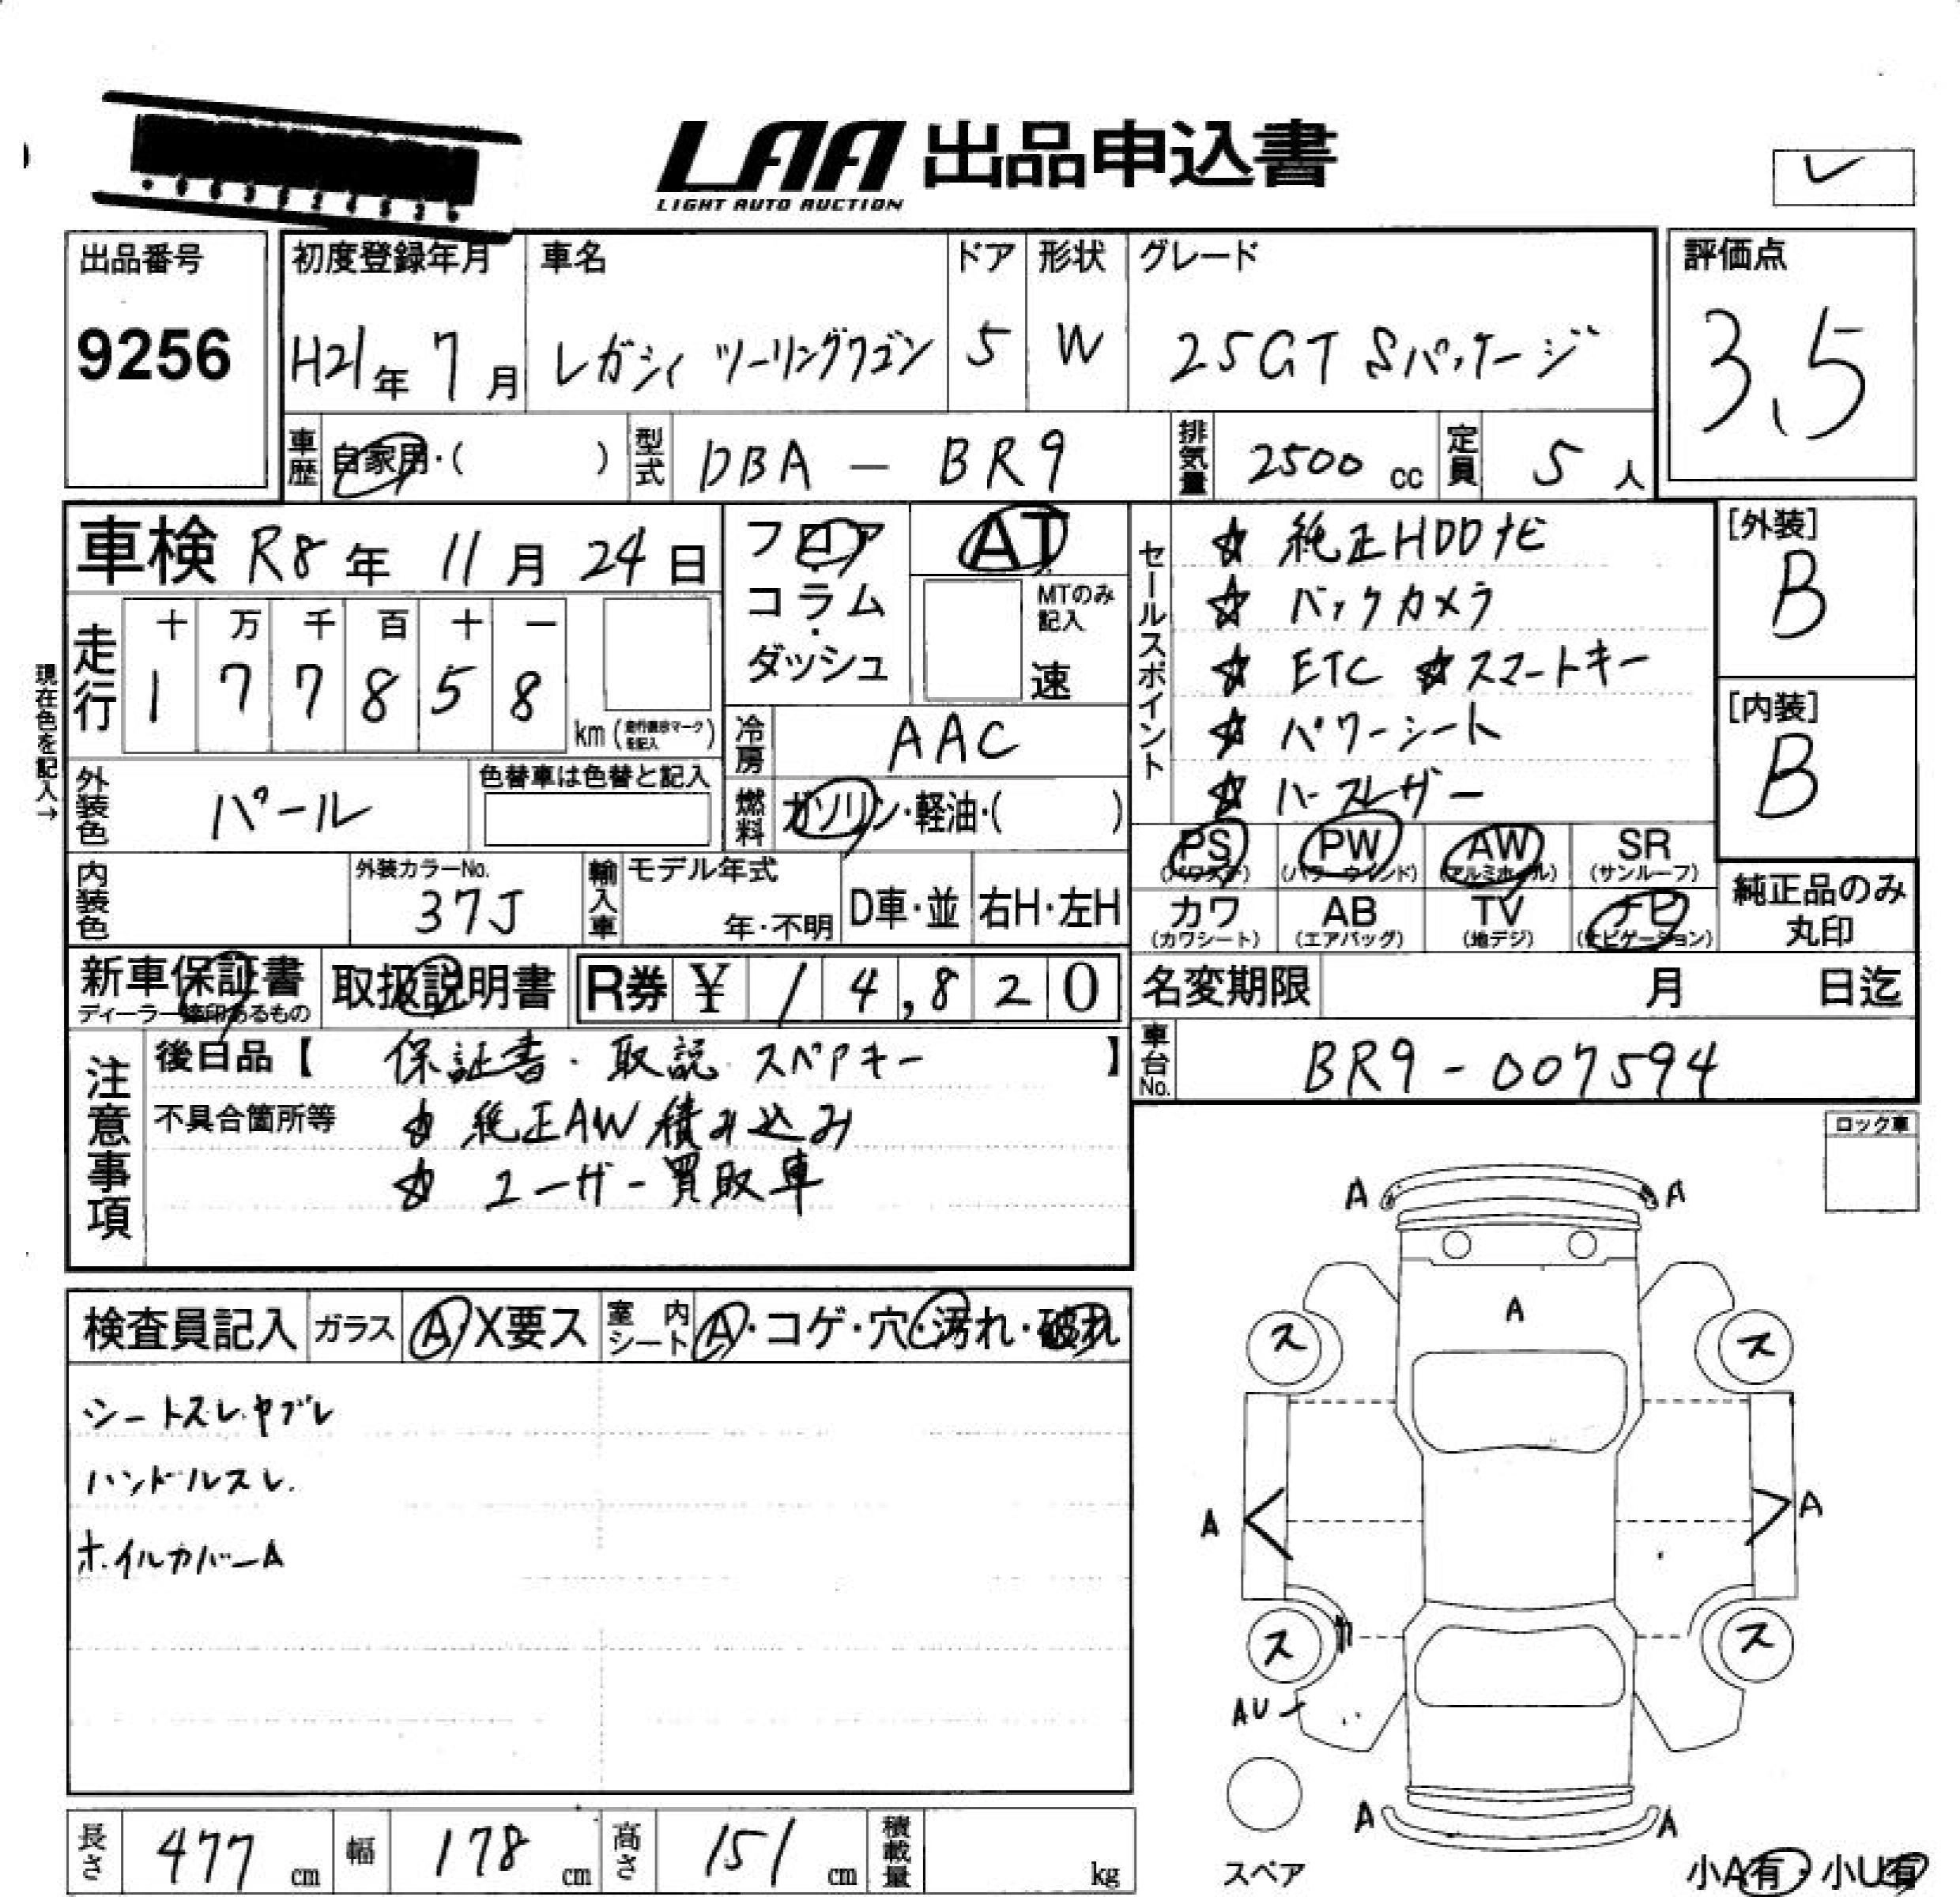 LAA 出品申込書
LIGHT AUTO AUCTION
レ
出品番号 初度登録年月 車名 ドア 形状 グレード 評価点
9256 H21年 7月 レガシィ ツーリングワゴン 5 W 25GT Sパッケージ 3.5
車歴 自家用・( ) 型式 DBA - BR9 排気量 2500cc 定員 5人
車検 R8年 11月 24日 フロア・コラム・ダッシュ AT
MTのみ記入 速
現在色を記入→
走行 十 万 千 百 十 一
1 7 7 8 5 8 km
冷房 AAC
外装色 パール 色替車は色替と記入 燃料 ガソリン・軽油・( )
内装色 外装カラーNo. 37J 輸入車 モデル年式 年・不明 D車・並 右H・左H
セールスポイント
☆ 純正HDDナビ
☆ バックカメラ
☆ ETC ☆スマートキー
☆ パワーシート
☆ ハーフレザー
[外装] B
[内装] B
PS PW AW SR
(パワステ) (パワーウインド) (アルミホイル) (サンルーフ)
カワ AB TV ナビ
(カワシート) (エアバッグ) (地デジ) (ナビゲーション)
純正品のみ丸印
新車保証書 取扱説明書 R券 ¥ 14,820 名変期限 月 日迄
ディーラー捺印あるもの
車台No. BR9-007594
注意事項
後日品【 保証書・取説 スペアキー 】
不具合箇所等 ☆ 純正AW積み込み
☆ ユーザー買取車
ロック車
検査員記入 ガラス A X要ス 室内シート A・コゲ・穴・汚れ・破れ
シートスレ.ヤブレ
ハンドルスレ.
ホイルカバーA
A A
A
ス ス
A A
ス ス
AU
A A
スペア
小A有・小U有
長さ 477cm 幅 178cm 高さ 151cm 積載量 kg